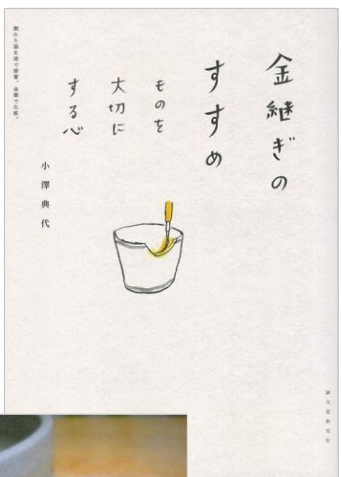 金継ぎの
すすめ
ものを
大切に
する心
小澤典代
割れた器を漆で接着。金継で化粧。
誠文堂新光社